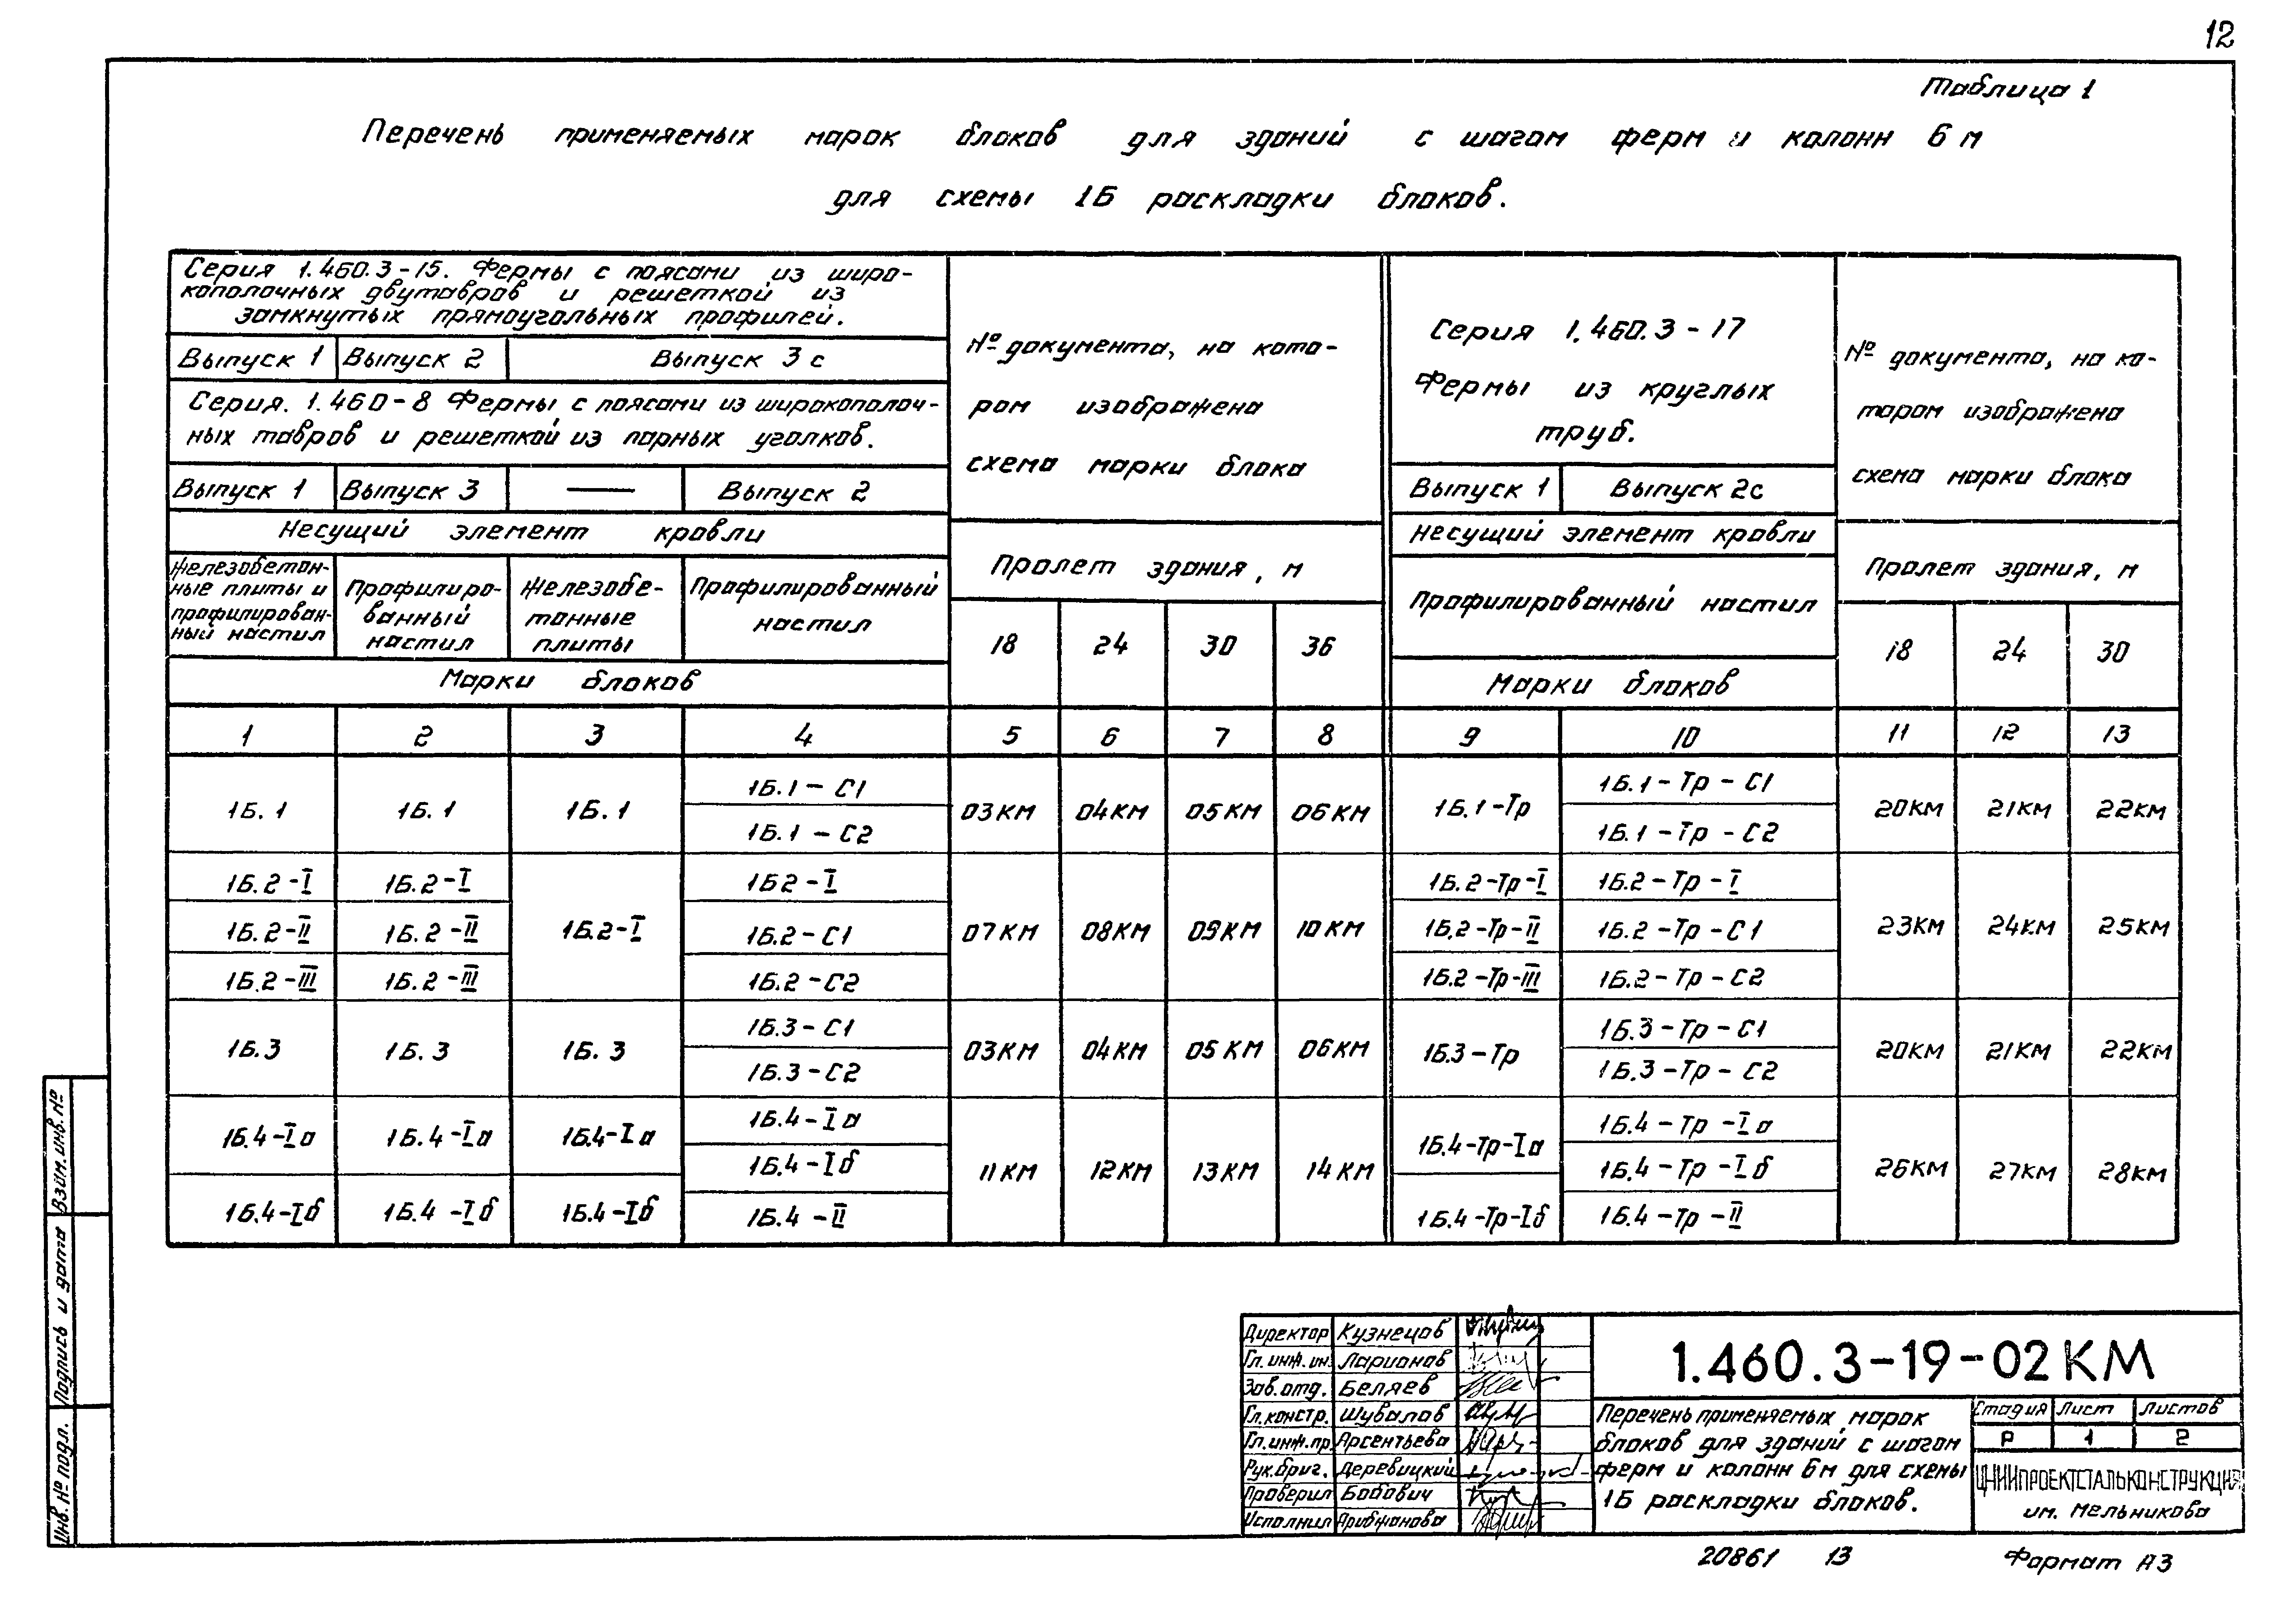 12
Таблица 1
Перечень применяемых марок блоков для зданий с шагом ферм и колонн 6 м
для схемы 1Б раскладки блоков.
Серия 1.460.3-15. Фермы с поясами из широ-
кополочных двутавров и решеткой из
замкнутых прямоугольных профилей.
Выпуск 1 Выпуск 2 Выпуск 3с
Серия. 1.460-8 Фермы с поясами из широкополоч-
ных тавров и решеткой из парных уголков.
Выпуск 1 Выпуск 3 — Выпуск 2
Несущий элемент кровли
Железобетон-
ные плиты и
профилирован-
ный настил
Профилиро-
ванный
настил
Железобе-
тонные
плиты
Профилированный
настил
Марки блоков
№ документа, на кото-
ром изображена
схема марки блока
Пролет здания, м
18 24 30 36
Серия 1.460.3-17
Фермы из круглых
труб.
Выпуск 1 Выпуск 2с
Несущий элемент кровли
Профилированный настил
Марки блоков
№ документа, на ко-
тором изображена
схема марки блока
Пролет здания, м
18 24 30
1 2 3 4 5 6 7 8 9 10 11 12 13
1Б.1 1Б.1 1Б.1 1Б.1-С1 03КМ 04КМ 05КМ 06КМ 1Б.1-Тр 1Б.1-Тр-С1 20КМ 21КМ 22КМ
1Б.1-С2 1Б.1-Тр-С2
1Б.2-I 1Б.2-I 1Б2-I 1Б.2-Тр-I 1Б.2-Тр-I
1Б.2-II 1Б.2-II 1Б.2-I 1Б.2-С1 07КМ 08КМ 09КМ 10КМ 1Б.2-Тр-II 1Б.2-Тр-С1 23КМ 24КМ 25КМ
1Б.2-III 1Б.2-III 1Б.2-С2 1Б.2-Тр-III 1Б.2-Тр-С2
1Б.3 1Б.3 1Б.3 1Б.3-С1 03КМ 04КМ 05КМ 06КМ 1Б.3-Тр 1Б.3-Тр-С1 20КМ 21КМ 22КМ
1Б.3-С2 1Б.3-Тр-С2
1Б.4-Iа 1Б.4-Iа 1Б.4-Iа 1Б.4-Iа 1Б.4-Тр-Iа 1Б.4-Тр-Iа
1Б.4-Iб 11КМ 12КМ 13КМ 14КМ 1Б.4-Тр-Iб 26КМ 27КМ 28КМ
1Б.4-Iб 1Б.4-Iб 1Б.4-Iб 1Б.4-II 1Б.4-Тр-Iб 1Б.4-Тр-II
Взам. инв. №
Подпись и дата
Инв. № подл.
Директор Кузнецов
Гл. инж. ин. Ларионов
Зав. отд. Беляев
Гл. констр. Шувалов
Гл. инж. пр. Арсентьева
Рук. бриг. Деревицкий
Проверил Бобович
Исполнил Арибжанова
1.460.3-19-02КМ
Перечень применяемых марок
блоков для зданий с шагом
ферм и колонн 6м для схемы
1Б раскладки блоков.
Стадия Лист Листов
Р 1 2
ЦНИИПРОЕКТСТАЛЬКОНСТРУКЦИЯ
им. Мельникова
20861 13
Формат А3